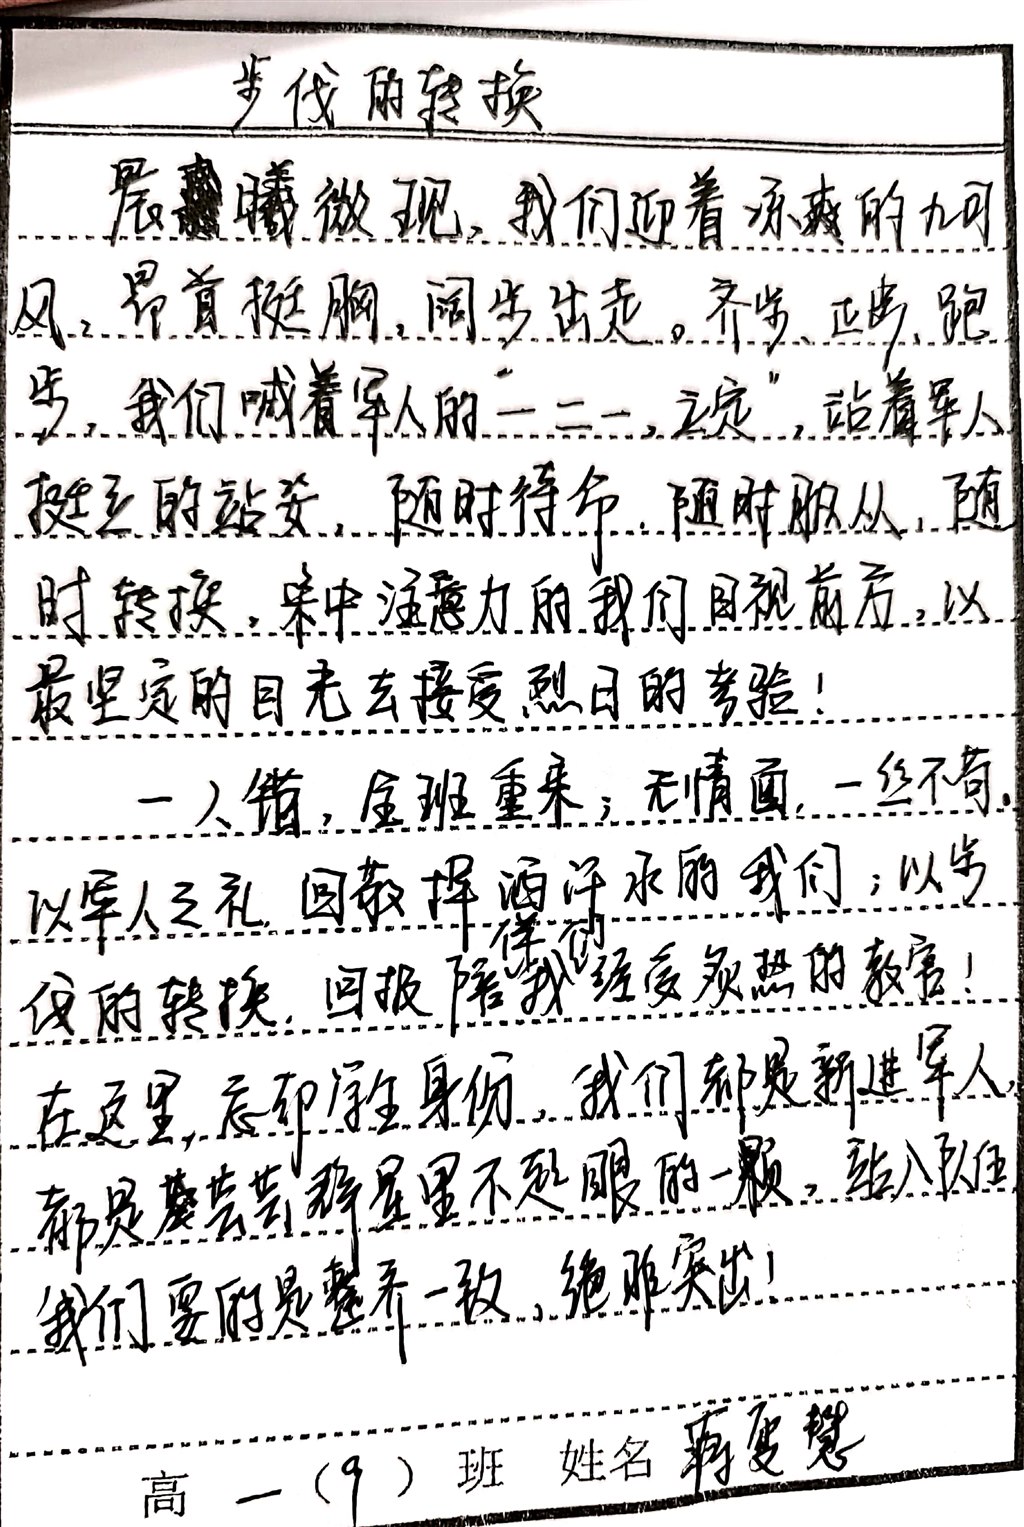 步伐的转换
晨曦微现，我们迎着凉爽的
风，昂首挺胸，阔步出走。齐步、正步、跑
步，我们喊着军人的“一二一，立定”，站着军人
挺立的站姿，随时待命，随时服从，随
时转换，集中注意力的我们目视前方，以
最坚定的目光去接受烈日的考验！
一人错，全班重来；无情面，一丝不苟，
以军人之礼，回敬挥洒汗水的我们；以步
伐的转换，回报陪伴我们经受炙热的教官！
在这里，忘却学生身份，我们都是新进军人，
都是芸芸群星里不起眼的一颗，站入队伍
我们要的是整齐一致，绝非突出！
高一（9）班 姓名 蒋雯慧